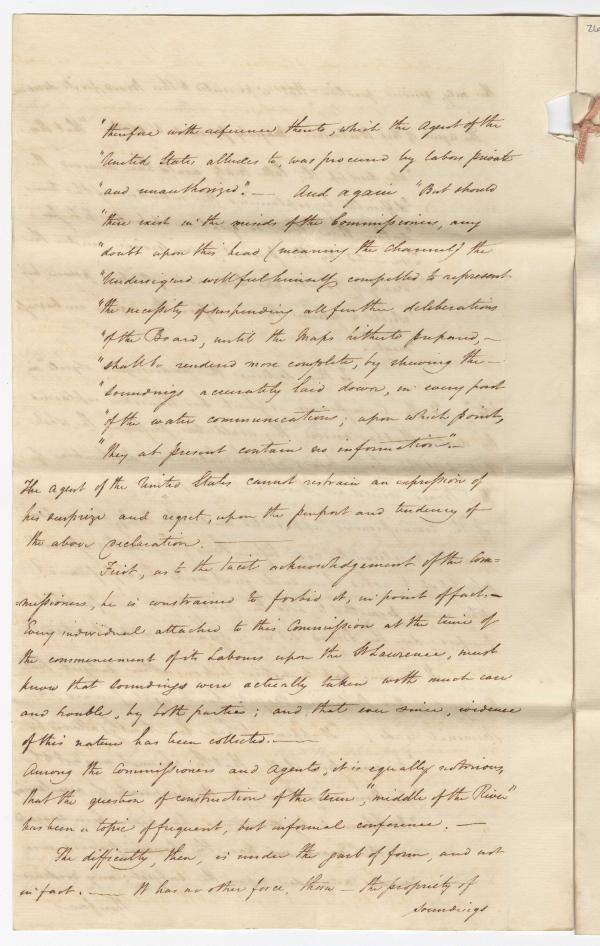 "therefore with deference thereto, which the agent of the
"United States alludes to, was procured by labors private
"and unauthorized". — And again "But should
"there exist in the minds of the Commissioners, any
"doubt upon this head (meaning the channel) the
"Undersigned will feel himself compelled to represent
"the necessity of suspending all further deliberations
"of the Board, until the Maps hitherto prepared, —
"shall be rendered more complete, by shewing the —
"soundings accurately laid down, in every part
"of the water communications; upon which point,
"they at present contain no information". —
The agent of the United States cannot restrain an expression of
his surprize and regret, upon the purport and tendency of
the above declaration. ———
First, as to the tacit acknowledgement of the Com-
missioners, he is constrained to forbid it, in point of fact. —
Every individual attached to this Commission at the time of
the commencement of its Labours upon the St Lawrence, must
know that soundings were actually taken with much care
and trouble, by both parties; and that ever since, evidence
of this nature has been collected. ———
Among the Commissioners and agents, it is equally notorious,
that the question of construction of the term, "middle of the River"
has been a topic of frequent, but informal conference. —
The difficulty, then, is under the garb of form, and not
in fact. —— It has no other force, than — the propriety of
soundings